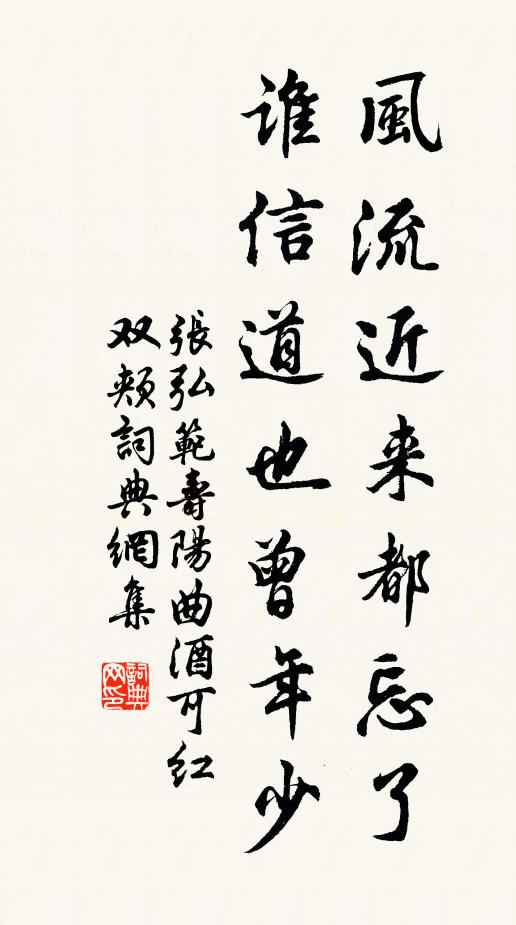 風流近来都忘了
谁信道也曾年少
張弘範壽陽曲酒可红
双頰詞典網集
詞典网印